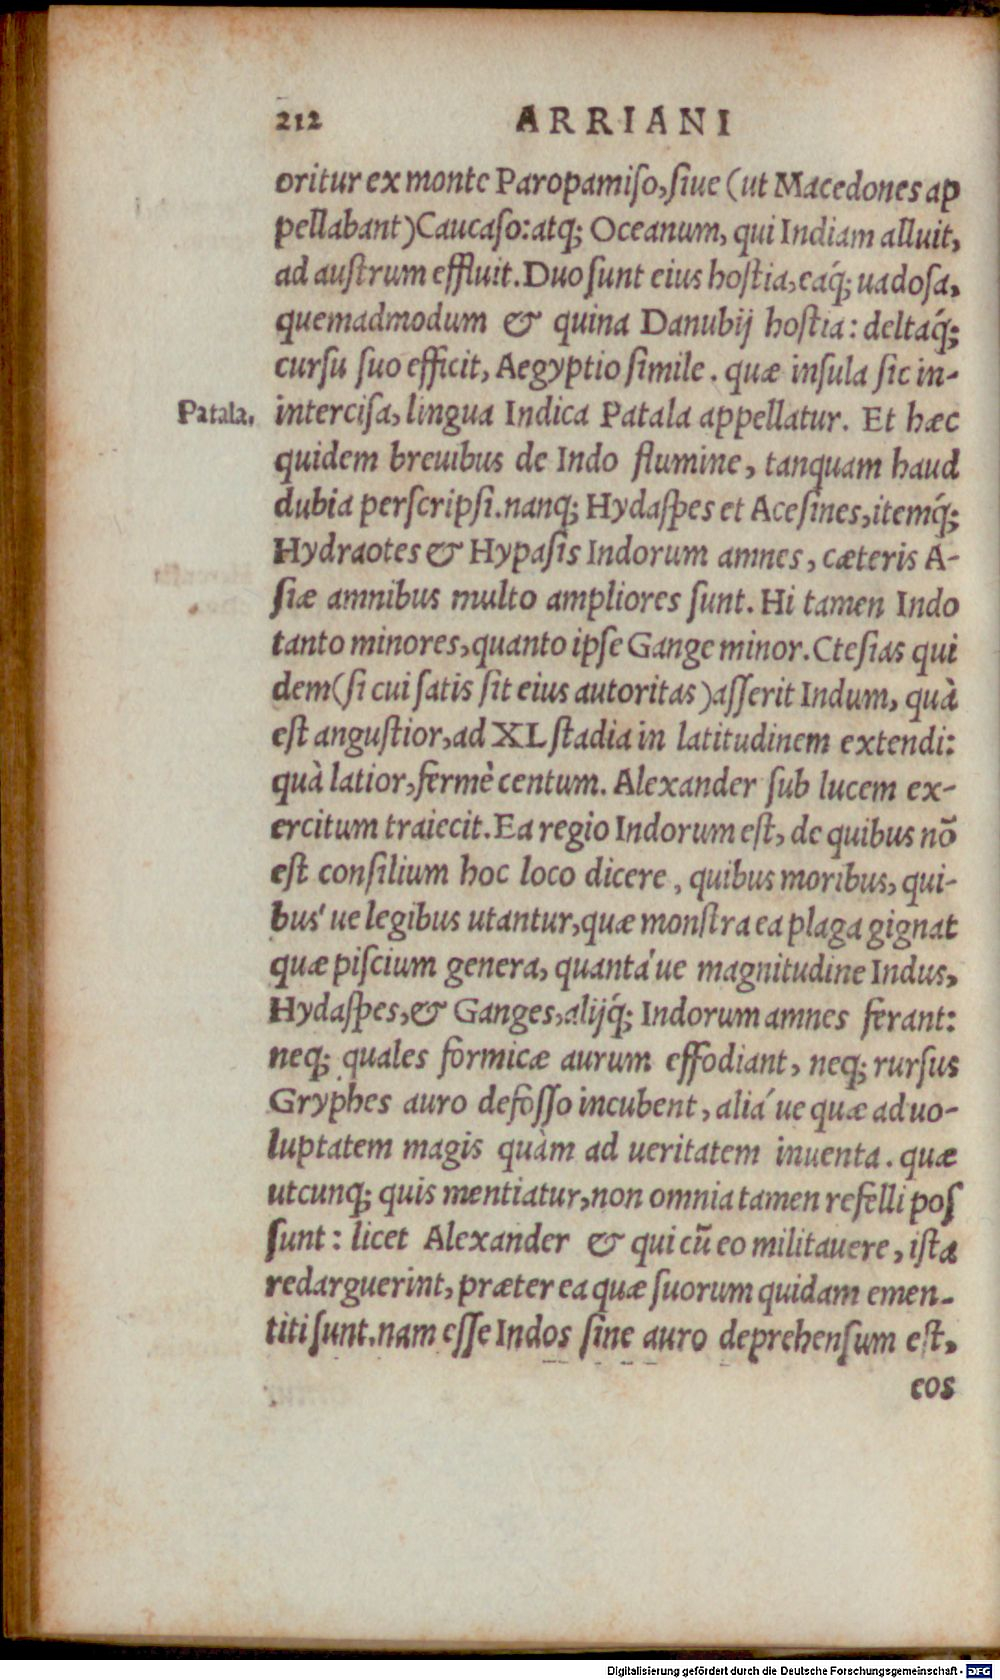 212 ARRIANI
oritur ex monte Paropamiſo, ſiue (ut Macedones ap
pellabant) Caucaſo: atq; Oceanum, qui Indiam alluit,
ad auſtrum effluit. Duo ſunt eius hoſtia, eaq́; uadoſa,
quemadmodum & quina Danubij hoſtia: deltaq́;
curſu ſuo efficit, Aegyptio ſimile. quæ inſula ſic in-
Patala. interciſa, lingua Indica Patala appellatur. Et hæc
quidem breuibus de Indo flumine, tanquam haud
dubia perſcripſi. nanq; Hydaſpes et Aceſines, itemq́;
Hydraotes & Hypaſis Indorum amnes, cæteris A-
ſiæ amnibus multo ampliores ſunt. Hi tamen Indo
tanto minores, quanto ipſe Gange minor. Cteſias qui
dem (ſi cui ſatis ſit eius autoritas) aſſerit Indum, quà
eſt anguſtior, ad XL ſtadia in latitudinem extendi:
quà latior, fermè centum. Alexander ſub lucem ex-
ercitum traiecit. Ea regio Indorum eſt, de quibus nõ
eſt conſilium hoc loco dicere, quibus moribus, qui-
bus´ue legibus utantur, quæ monſtra ea plaga gignat
quæ piſcium genera, quanta´ue magnitudine Indus,
Hydaſpes, & Ganges, alijq́; Indorum amnes ferant:
neq; quales formicæ aurum effodiant, neq; rurſus
Gryphes auro defoſſo incubent, alia´ue quæ ad uo-
luptatem magis quàm ad ueritatem inuenta. quæ
utcunq; quis mentiatur, non omnia tamen refelli poſ
ſunt: licet Alexander & qui cũ eo militauere, iſta
redarguerint, præter ea quæ ſuorum quidam emen-
titi ſunt. nam eſſe Indos ſine auro deprehenſum eſt,
eos
Digitalisierung gefördert durch die Deutsche Forschungsgemeinschaft - DFG